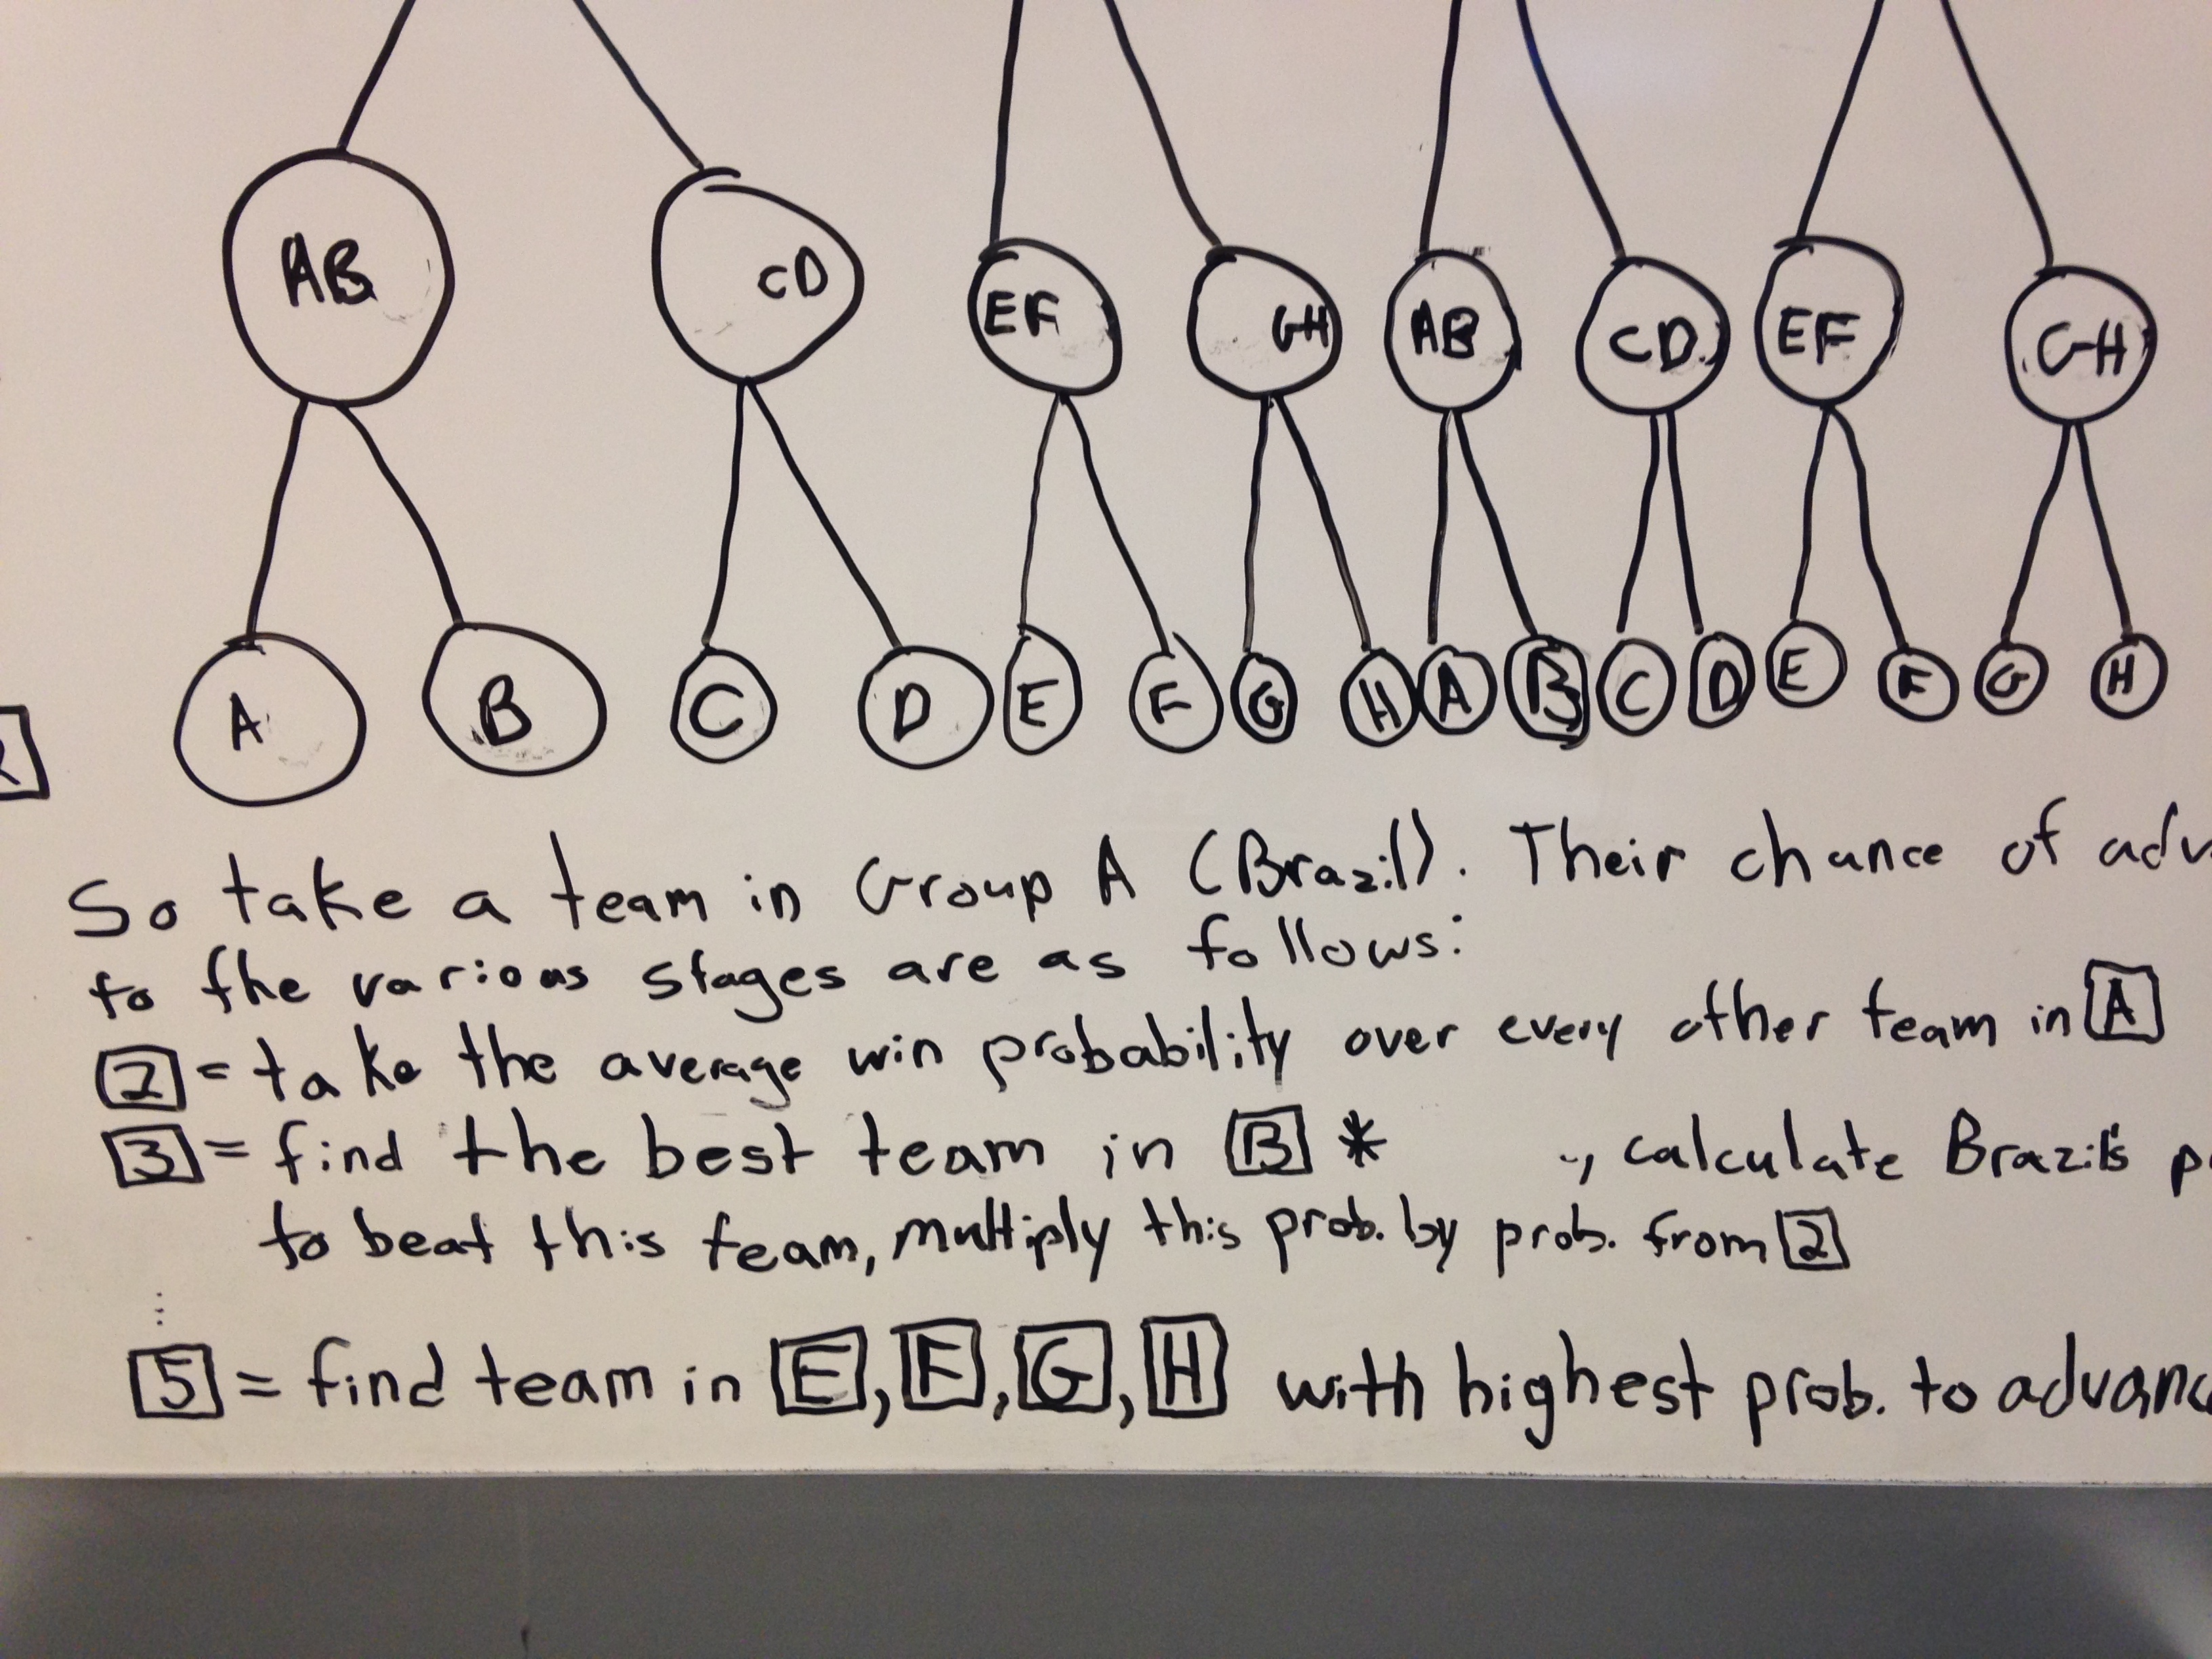 AB CD EF GH AB CD EF GH
A B C D E F G H A B C D E F G H
So take a team in Group A (Brazil). Their chance of
to the various stages are as follows:
2 = take the average win probability over every other team in A
3 = find the best team in B * , calculate Brazil's
to beat this team, multiply this prob. by prob. from 2
⋮
5 = find team in E, F, G, H with highest prob. to